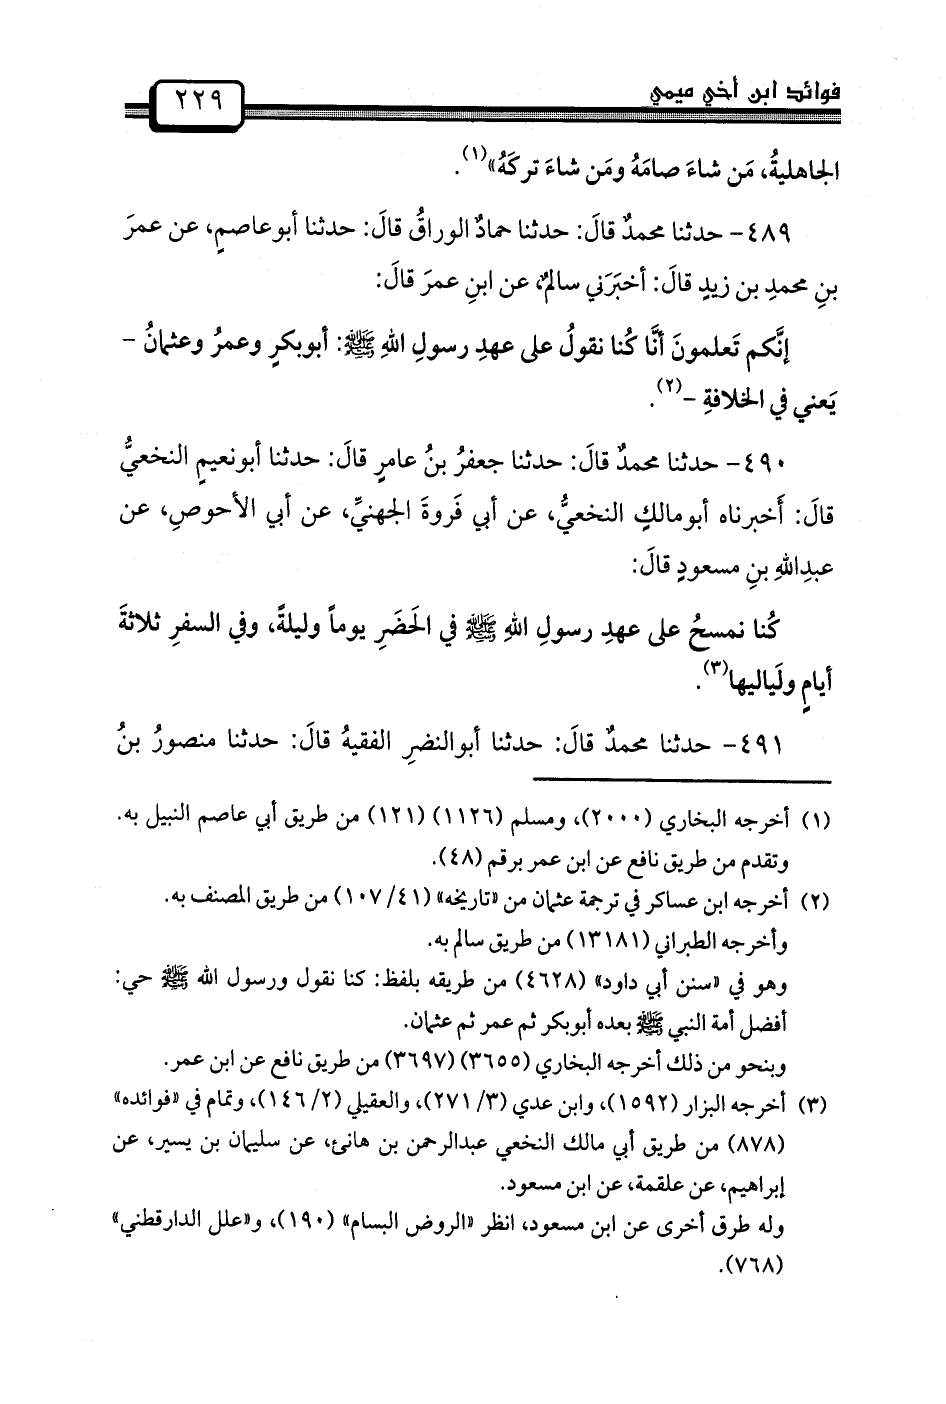 فوائد ابن أخي ميمي
٢٢٩
الجاهليةُ، مَن شاءَ صامَهُ ومَن شاءَ تركَهُ»(١).
٤٨٩- حدثنا محمدٌ قالَ: حدثنا حمادٌ الوراقُ قالَ: حدثنا أبوعاصمٍ، عن عمرَ
بنِ محمدِ بن زيدٍ قالَ: أخبَرَني سالمٌ، عن ابنِ عمرَ قالَ:
إنَّكم تَعلمونَ أنَّا كُنا نقولُ على عهدِ رسولِ اللهِ ﷺ: أبوبكرٍ وعمرُ وعثمانُ -
يَعني في الخلافةِ -(٢).
٤٩٠- حدثنا محمدٌ قالَ: حدثنا جعفرُ بنُ عامرٍ قالَ: حدثنا أبونعيمٍ النخعيُّ
قالَ: أَخبرناه أبومالكٍ النخعيُّ، عن أبي فَروةَ الجهنيِّ، عن أبي الأحوصِ، عن
عبدِاللهِ بنِ مسعودٍ قالَ:
كُنا نمسحُ على عهدِ رسولِ اللهِ ﷺ في الحَضَرِ يوماً وليلةً، وفي السفرِ ثلاثةَ
أيامٍ ولَياليها(٣).
٤٩١- حدثنا محمدٌ قالَ: حدثنا أبوالنضرِ الفقيهُ قالَ: حدثنا منصورُ بنُ
(١) أخرجه البخاري (٢٠٠٠)، ومسلم (١١٢٦) (١٢١) من طريق أبي عاصم النبيل به.
وتقدم من طريق نافع عن ابن عمر برقم (٤٨).
(٢) أخرجه ابن عساكر في ترجمة عثمان من «تاريخه» (٤١/ ١٠٧) من طريق المصنف به.
وأخرجه الطبراني (١٣١٨١) من طريق سالم به.
وهو في «سنن أبي داود» (٤٦٢٨) من طريقه بلفظ: كنا نقول ورسول الله ﷺ حي:
أفضل أمة النبي ﷺ بعده أبوبكر ثم عمر ثم عثمان.
وبنحو من ذلك أخرجه البخاري (٣٦٥٥) (٣٦٩٧) من طريق نافع عن ابن عمر.
(٣) أخرجه البزار (١٥٩٢)، وابن عدي (٣/ ٢٧١)، والعقيلي (٢/ ١٤٦)، وتمام في «فوائده»
(٨٧٨) من طريق أبي مالك النخعي عبدالرحمن بن هانئ، عن سليمان بن يسير، عن
إبراهيم، عن علقمة، عن ابن مسعود.
وله طرق أخرى عن ابن مسعود، انظر «الروض البسام» (١٩٠)، و«علل الدارقطني»
(٧٦٨).